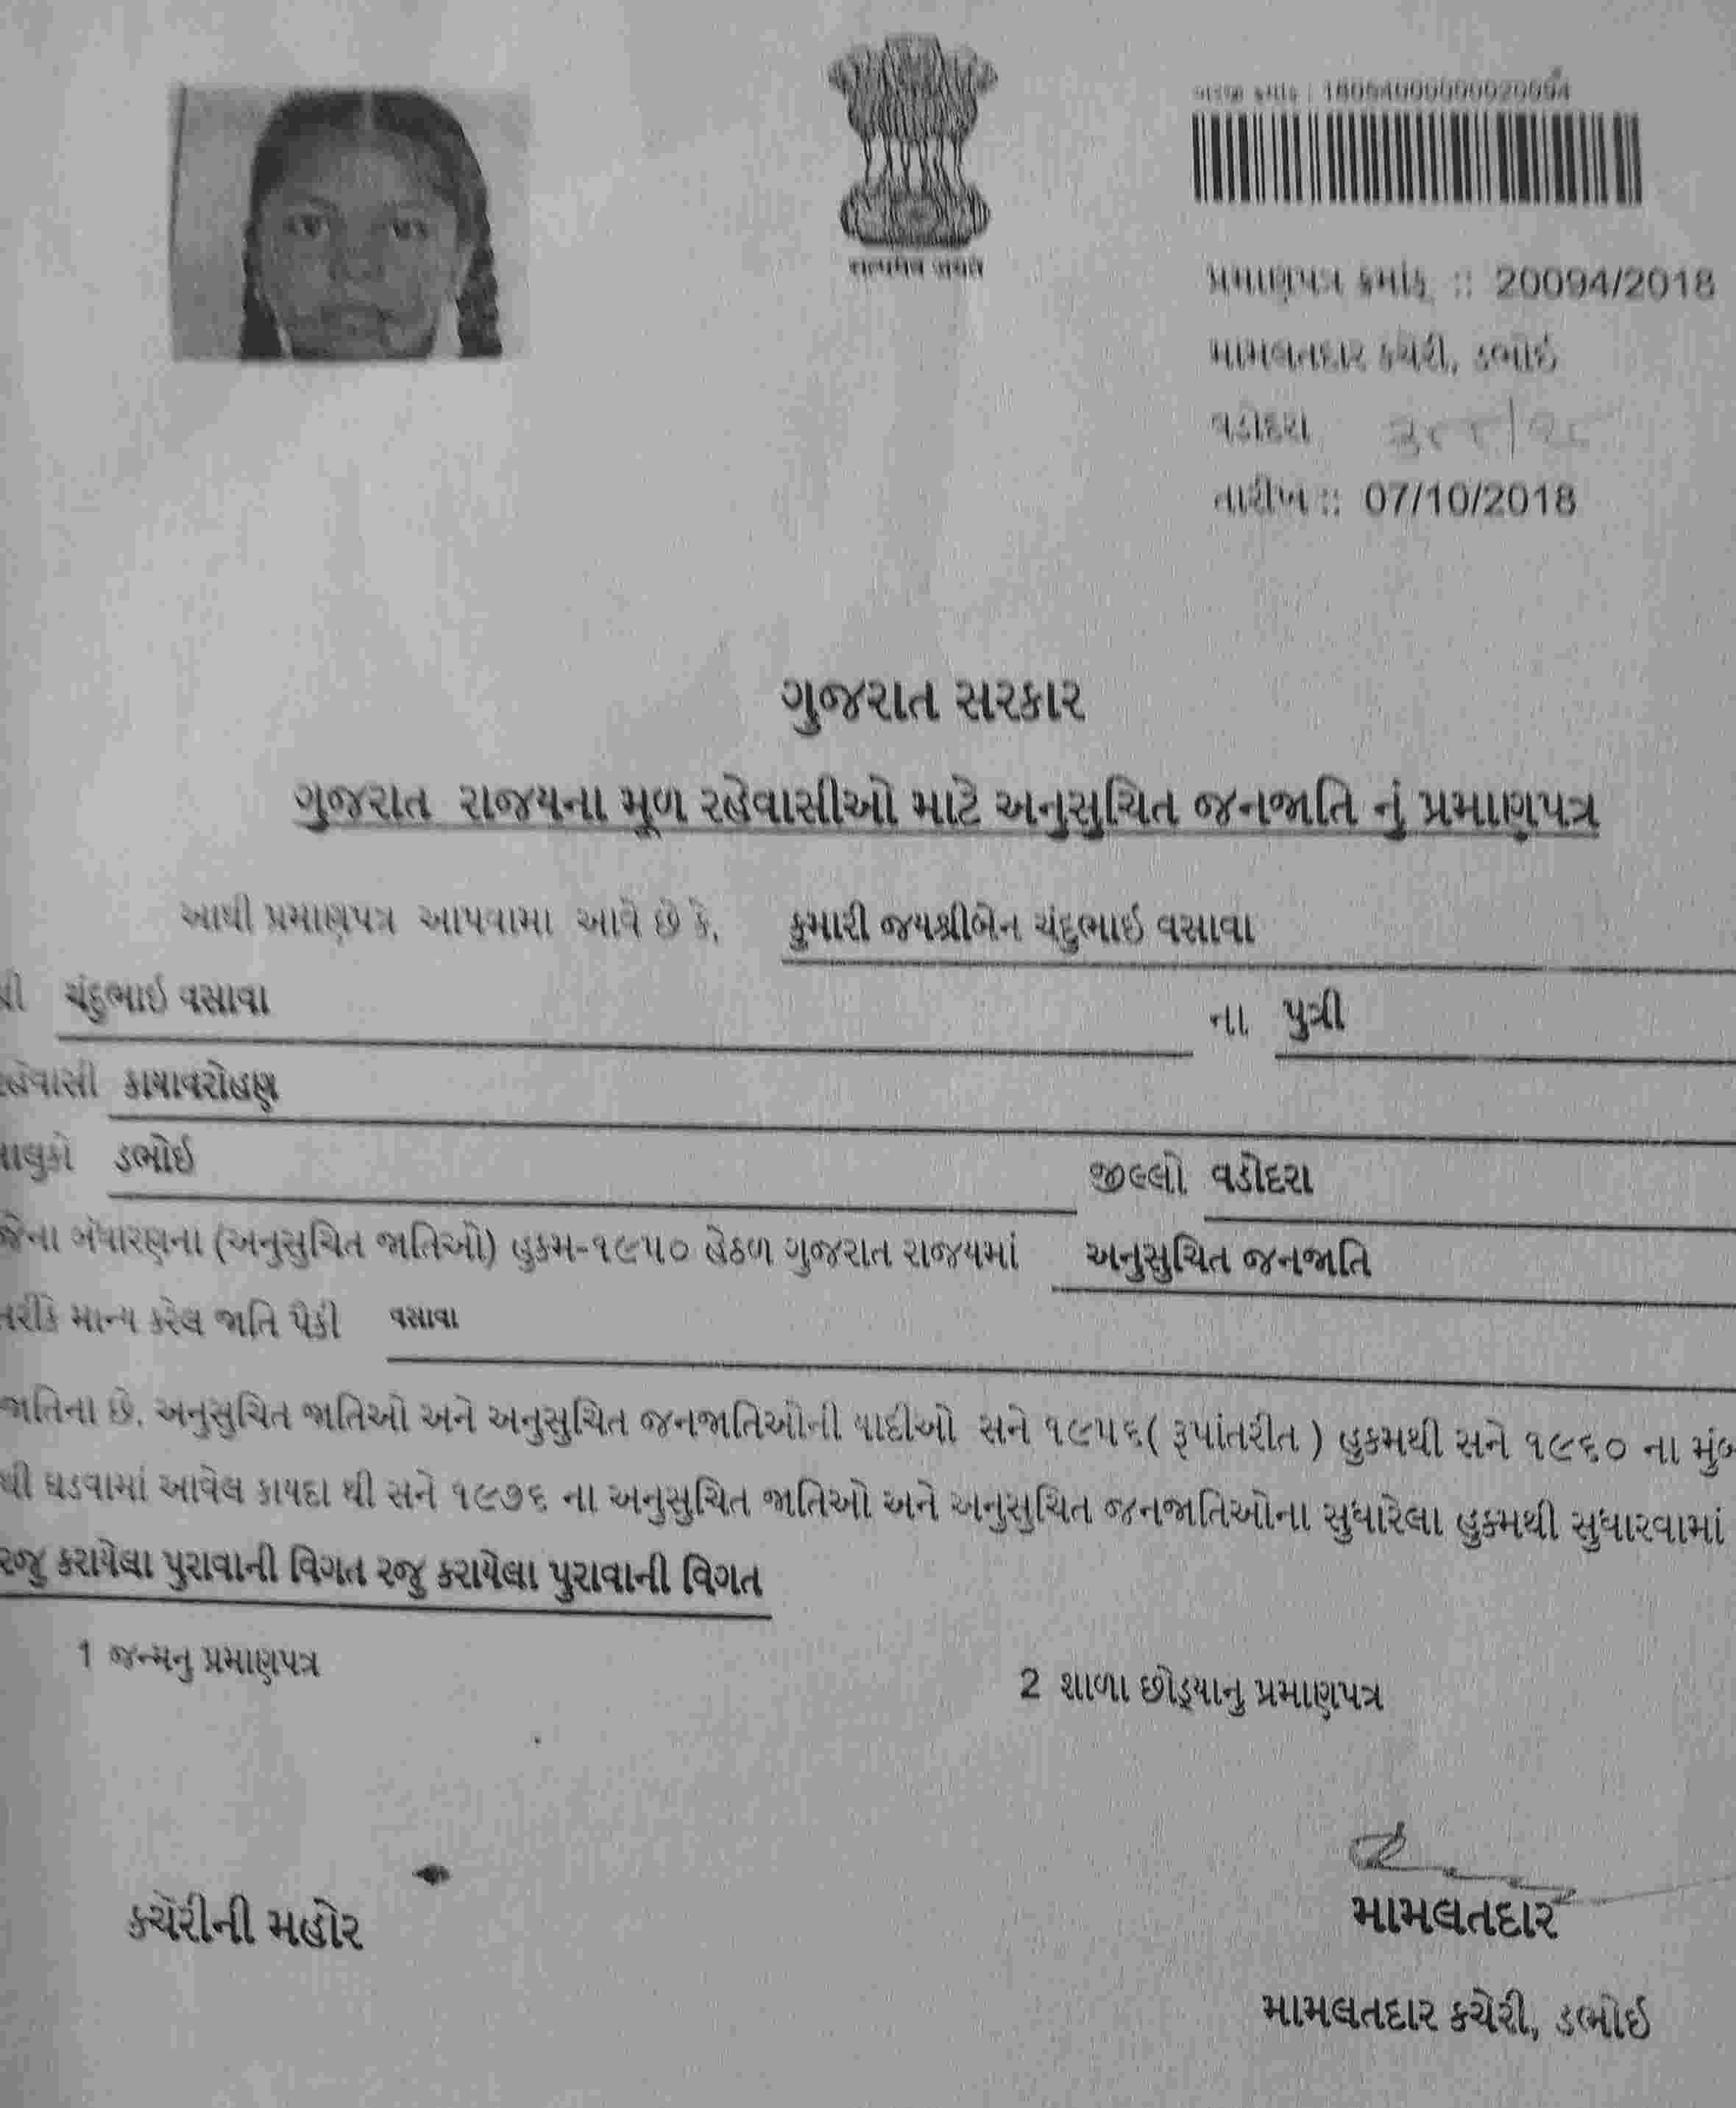 અરજી ક્રમાંક : 18064000000020094
सत्यमेव जयते
પ્રમાણપત્ર ક્રમાંક :: 20094/2018
મામલતદાર કચેરી, ડભોઇ
વડોદરા
તારીખ :: 07/10/2018
ગુજરાત સરકાર
ગુજરાત રાજયના મૂળ રહેવાસીઓ માટે અનુસુચિત જનજાતિ નું પ્રમાણપત્ર
આથી પ્રમાણપત્ર આપવામા આવે છે કે, કુમારી જયશ્રીબેન ચંદુભાઇ વસાવા
ચંદુભાઇ વસાવા ના પુત્રી
રહેવાસી કાયાવરોહણ
તાલુકો ડભોઇ જીલ્લો વડોદરા
જેના બંધારણના (અનુસુચિત જાતિઓ) હુકમ-૧૯૫૦ હેઠળ ગુજરાત રાજયમાં અનુસુચિત જનજાતિ
તરીકે માન્ય કરેલ જાતિ પૈકી વસાવા
જાતિના છે. અનુસુચિત જાતિઓ અને અનુસુચિત જનજાતિઓની યાદીઓ સને ૧૯૫૬( રૂપાંતરીત ) હુકમથી સને ૧૯૬૦ ના
થી ઘડવામાં આવેલ કાયદા થી સને ૧૯૭૬ ના અનુસુચિત જાતિઓ અને અનુસુચિત જનજાતિઓના સુધારેલા હુકમથી સુધારવામાં
રજુ કરાયેલા પુરાવાની વિગત રજુ કરાયેલા પુરાવાની વિગત
1 જન્મનુ પ્રમાણપત્ર
2 શાળા છોડ્યાનુ પ્રમાણપત્ર
કચેરીની મહોર
મામલતદાર
મામલતદાર કચેરી, ડભોઇ